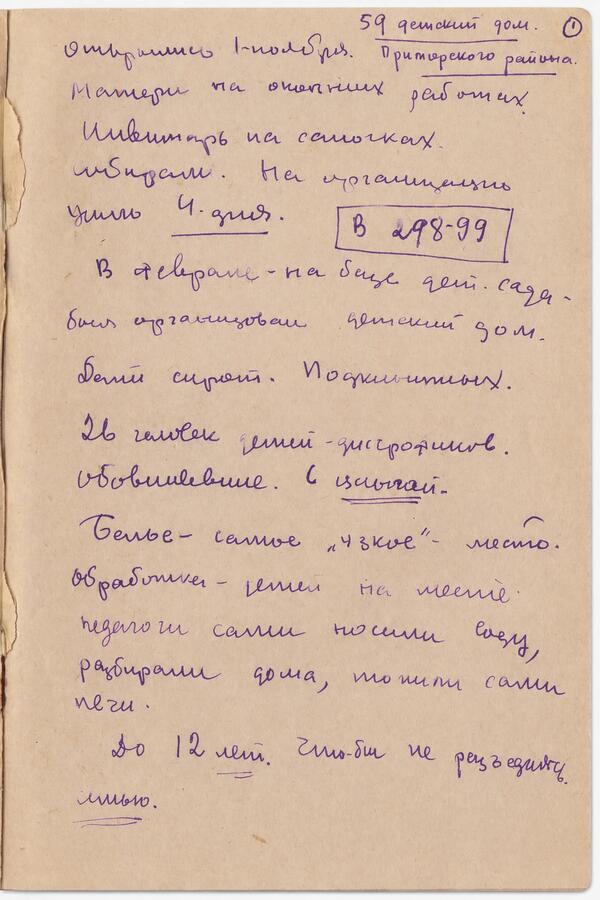 59 детский дом. 1
Открылись 1-ноября. Приморского района.
Матери на окопных работах.
Инвентарь на саночках
собирали. На организацию
ушло 4-дня. В 298-99
В феврале-на базе дет. сада-
был организован детский дом.
Дети сирот. Подкинутых.
26 человек детей-дистрофиков.
обовшевшие. 6
Белье- самое „узкое"- место.
Обработка- детей на месте.
педагоги сами носили воду,
разбирали дома, топили сами
печи.
До 12 лет. Что-бы не разъединять
семью.